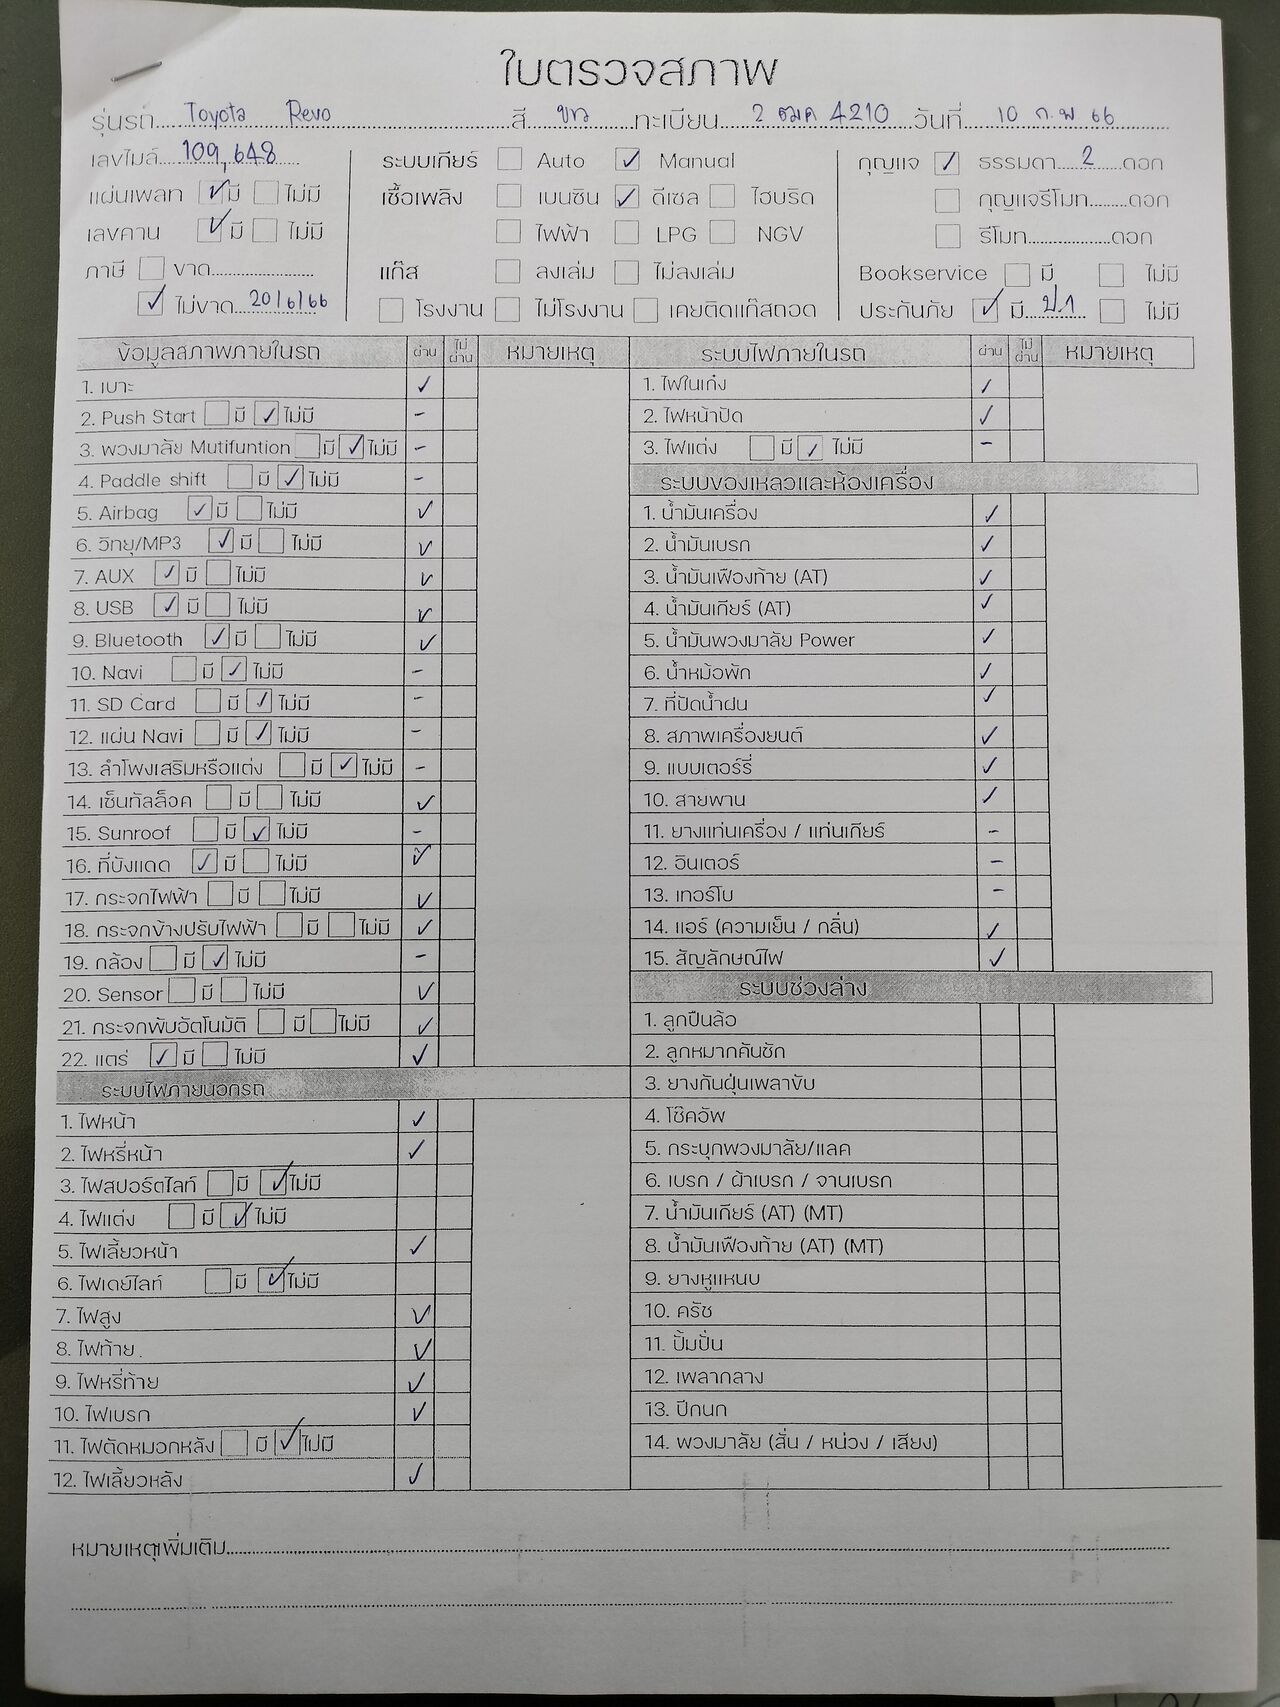 ใบตรวจสภาพ
รุ่นรถ Toyota Revo สี ขาว ทะเบียน 2 ฒฆค 4210 วันที่ 10 ก.พ 66
เลขไมล์ 109,648 ระบบเกียร์ ☐ Auto ☑ Manual กุญแจ ☑ ธรรมดา 2 ดอก
แผ่นเพลท ☑ มี ☐ ไม่มี เชื้อเพลิง ☐ เบนซิน ☑ ดีเซล ☐ ไฮบริด ☐ กุญแจรีโมท........ดอก
เลขคาน ☑ มี ☐ ไม่มี ☐ ไฟฟ้า ☐ LPG ☐ NGV ☐ รีโมท........ดอก
ภาษี ☐ ขาด........ แก๊ส ☐ ลงเล่ม ☐ ไม่ลงเล่ม Bookservice ☐ มี ☐ ไม่มี
☑ ไม่ขาด 20/6/66 ☐ โรงงาน ☐ ไม่โรงงาน ☐ เคยติดแก๊สถอด ประกันภัย ☑ มี ป.1 ☐ ไม่มี
ข้อมูลสภาพภายในรถ ผ่าน ไม่ผ่าน หมายเหตุ
1. เบาะ ✓
2. Push Start ☐ มี ☑ ไม่มี -
3. พวงมาลัย Mutifuntion ☐ มี ☑ ไม่มี -
4. Paddle shift ☐ มี ☑ ไม่มี -
5. Airbag ☑ มี ☐ ไม่มี ✓
6. วิทยุ/MP3 ☑ มี ☐ ไม่มี ✓
7. AUX ☑ มี ☐ ไม่มี ✓
8. USB ☑ มี ☐ ไม่มี ✓
9. Bluetooth ☑ มี ☐ ไม่มี ✓
10. Navi ☐ มี ☑ ไม่มี -
11. SD Card ☐ มี ☑ ไม่มี -
12. แผ่น Navi ☐ มี ☑ ไม่มี -
13. ลำโพงเสริมหรือแต่ง ☐ มี ☑ ไม่มี -
14. เซ็นทัลล็อค ☐ มี ☐ ไม่มี ✓
15. Sunroof ☐ มี ☑ ไม่มี -
16. ที่บังแดด ☑ มี ☐ ไม่มี ✓
17. กระจกไฟฟ้า ☐ มี ☐ ไม่มี ✓
18. กระจกข้างปรับไฟฟ้า ☐ มี ☐ ไม่มี ✓
19. กล้อง ☐ มี ☑ ไม่มี -
20. Sensor ☐ มี ☐ ไม่มี ✓
21. กระจกพับอัตโนมัติ ☐ มี ☐ ไม่มี ✓
22. แตร่ ☑ มี ☐ ไม่มี ✓
ระบบไฟภายนอกรถ
1. ไฟหน้า ✓
2. ไฟหรี่หน้า ✓
3. ไฟสปอร์ตไลท์ ☐ มี ☑ ไม่มี
4. ไฟแต่ง ☐ มี ☑ ไม่มี
5. ไฟเลี้ยวหน้า ✓
6. ไฟเดย์ไลท์ ☐ มี ☑ ไม่มี
7. ไฟสูง ✓
8. ไฟท้าย ✓
9. ไฟหรี่ท้าย ✓
10. ไฟเบรก ✓
11. ไฟตัดหมอกหลัง ☐ มี ☑ ไม่มี
12. ไฟเลี้ยวหลัง ✓
ระบบไฟภายในรถ ผ่าน ไม่ผ่าน หมายเหตุ
1. ไฟในเก๋ง ✓
2. ไฟหน้าปัด ✓
3. ไฟแต่ง ☐ มี ☑ ไม่มี -
ระบบของเหลวและห้องเครื่อง
1. น้ำมันเครื่อง ✓
2. น้ำมันเบรก ✓
3. น้ำมันเฟืองท้าย (AT) ✓
4. น้ำมันเกียร์ (AT) ✓
5. น้ำมันพวงมาลัย Power ✓
6. น้ำหม้อพัก ✓
7. ที่ปัดน้ำฝน ✓
8. สภาพเครื่องยนต์ ✓
9. แบบเตอร์รี่ ✓
10. สายพาน ✓
11. ยางแท่นเครื่อง / แท่นเกียร์ -
12. อินเตอร์ -
13. เทอร์โบ -
14. แอร์ (ความเย็น / กลิ่น) ✓
15. สัญลักษณ์ไฟ ✓
ระบบช่วงล่าง
1. ลูกปืนล้อ
2. ลูกหมากคันชัก
3. ยางกันฝุ่นเพลาขับ
4. โช๊คอัพ
5. กระบุกพวงมาลัย/แลค
6. เบรก / ผ้าเบรก / จานเบรก
7. น้ำมันเกียร์ (AT) (MT)
8. น้ำมันเฟืองท้าย (AT) (MT)
9. ยางหูแหนบ
10. ครัช
11. ปั้มปั่น
12. เพลากลาง
13. ปีกนก
14. พวงมาลัย (สั่น / หน่วง / เสียง)
หมายเหตุเพิ่มเติม